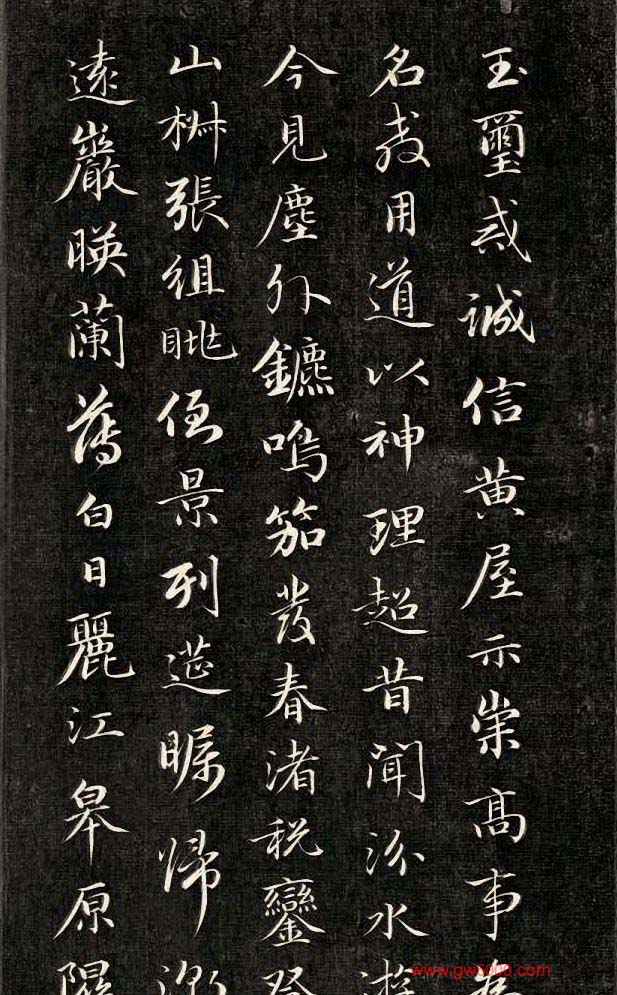 玉璽戒誠信黄屋示崇髙事為
名教用道以神理超昔聞汾水遊
今見塵外鑣鳴笳發春渚税鑾登
山椒張組眺倒景列筵矚歸潮
遠巖暎蘭薄白日麗江皋原隰
www.gw5000.com